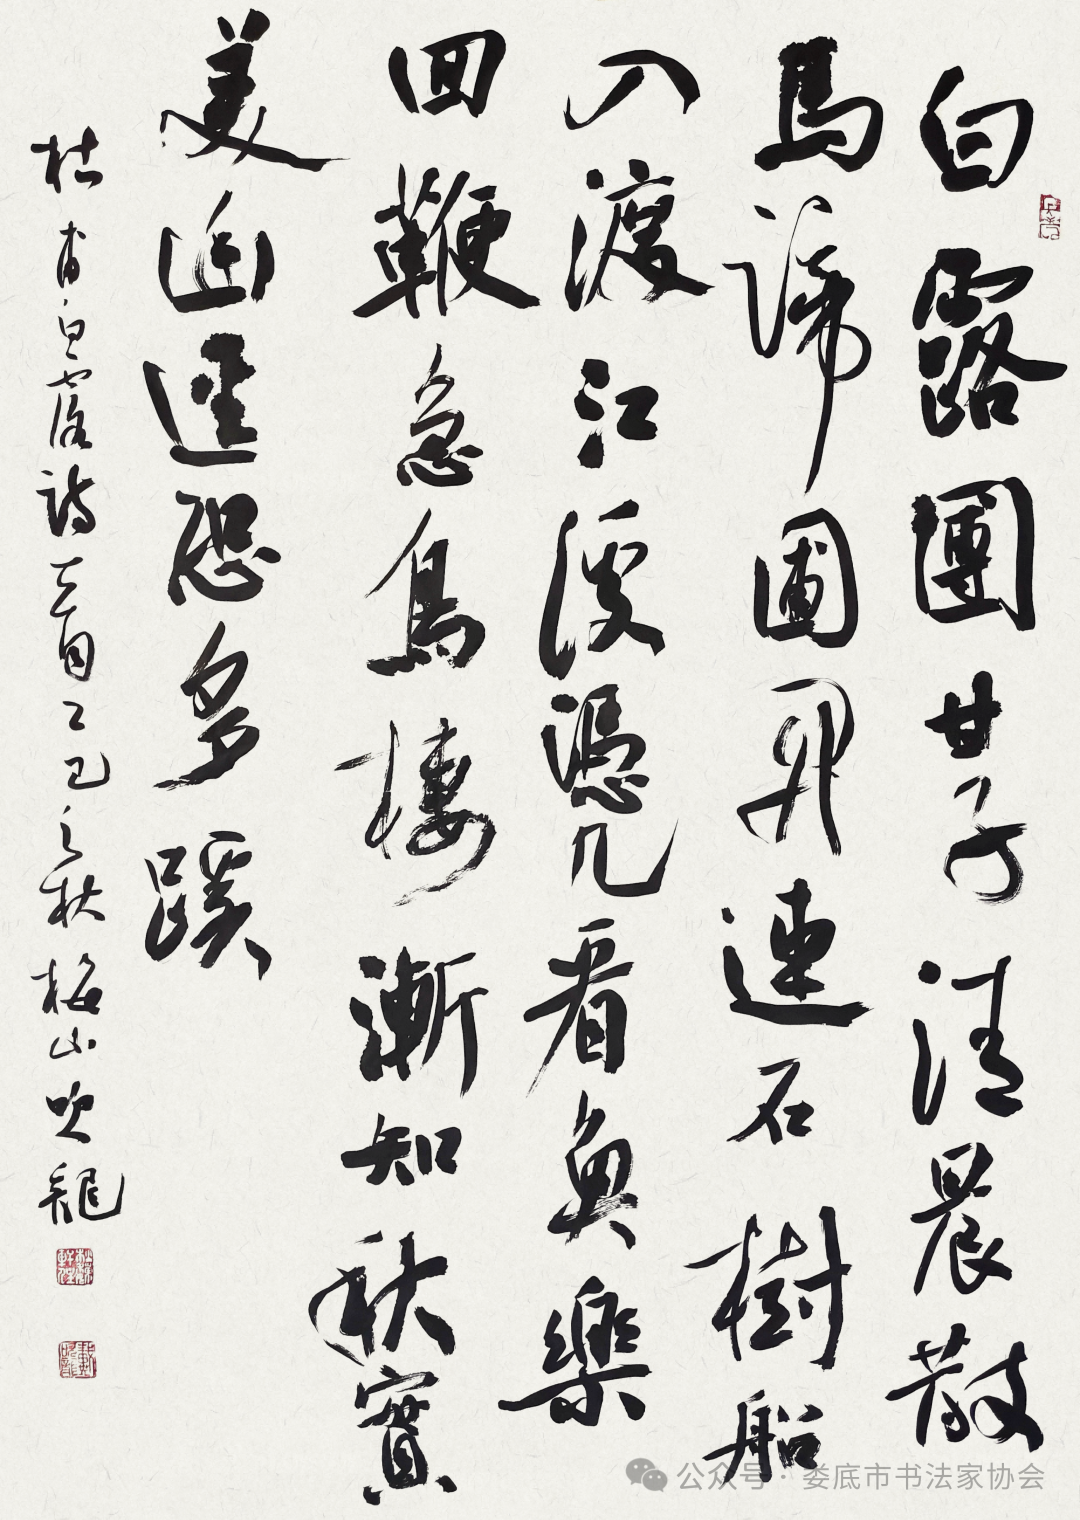 白露團甘子清晨散
馬蹄圃開連石樹船
入渡江溪憑几看魚樂
回鞭急鳥棲漸知秋實
美幽逕恐多蹊
杜甫白露詩一首乙巳之秋梅山龍
公众号·娄底市书法家协会